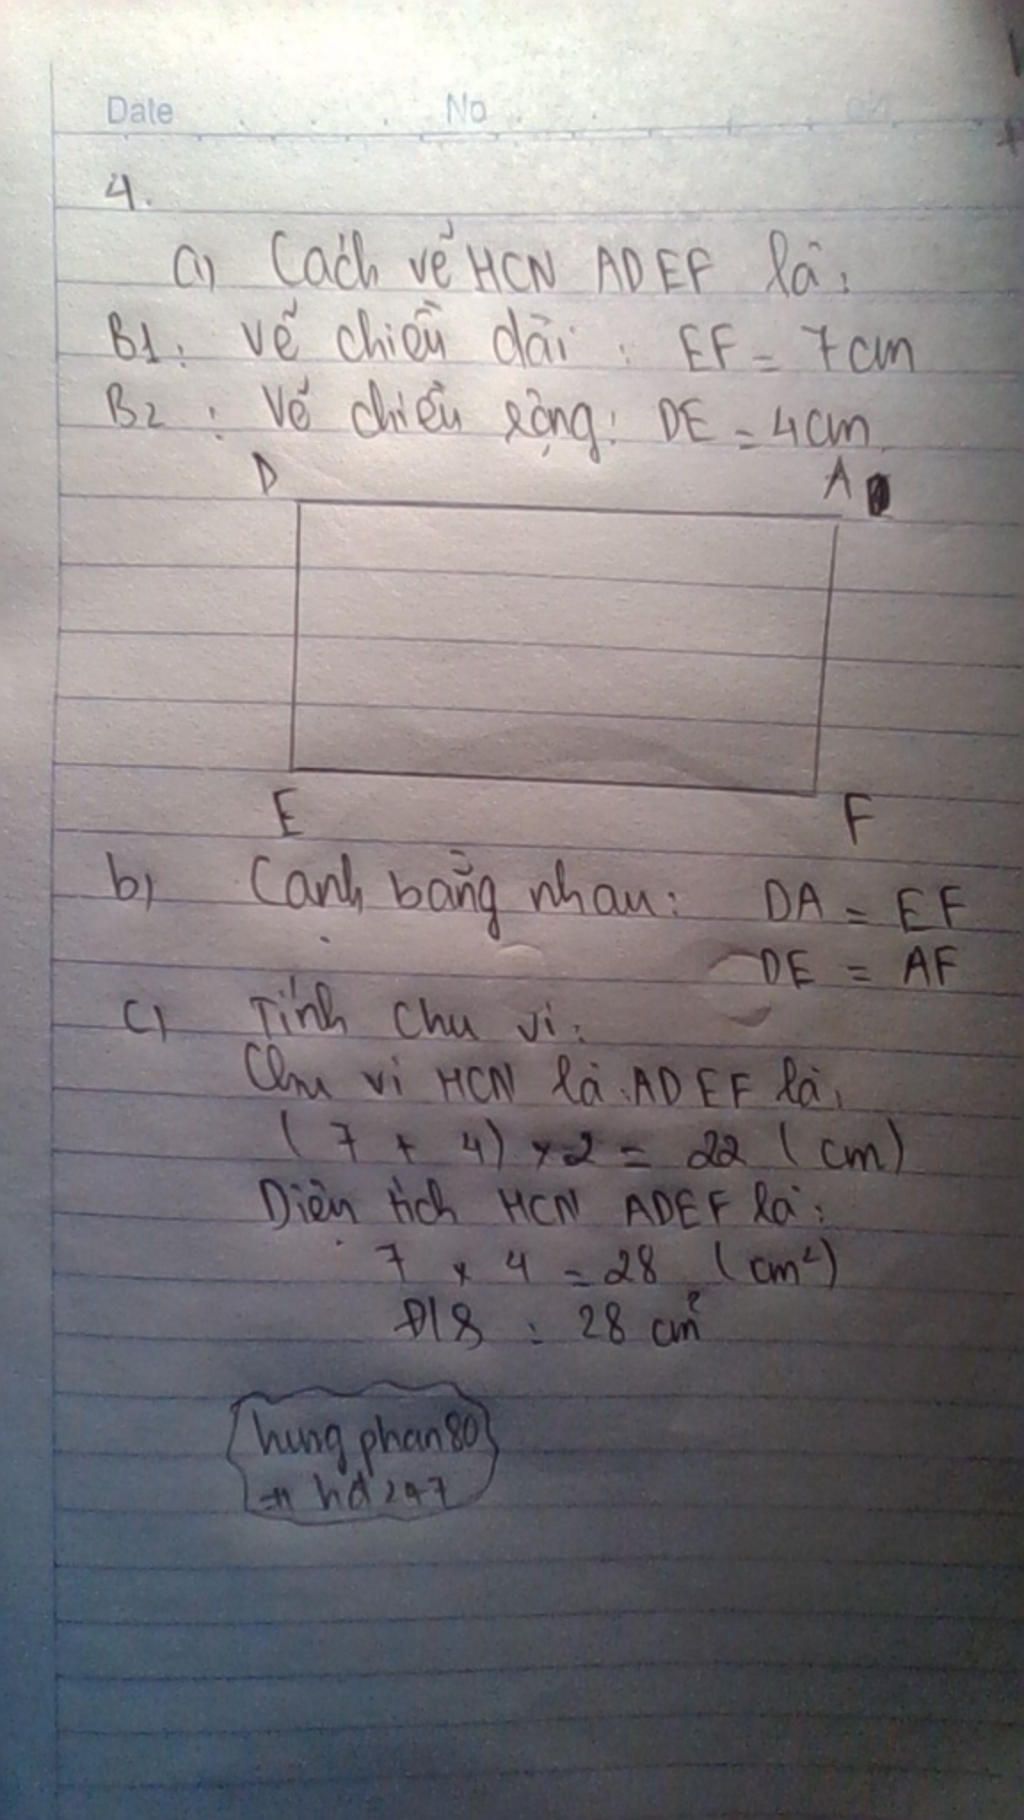 Date No
4.
a) Cách vẽ HCN ADEF là:
B1: Vẽ chiều dài : EF = 7cm
B2 : Vẽ chiều rộng: DE = 4cm
D A
E F
b) Cạnh bằng nhau: DA = EF
DE = AF
c) Tính chu vi:
Chu vi HCN là ADEF là:
( 7 + 4) x 2 = 22 ( cm)
Diện tích HCN ADEF là:
7 x 4 = 28 (cm²)
Đ/S : 28 cm²
hung phan 80
hd 247